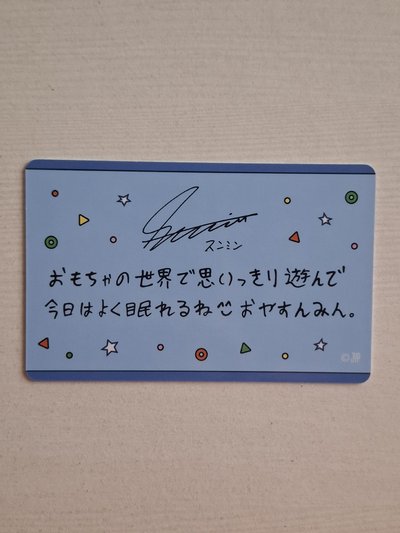 スンミン
おもちゃの世界で思いっきり遊んで
今日はよく眠れるね おやすんみん。